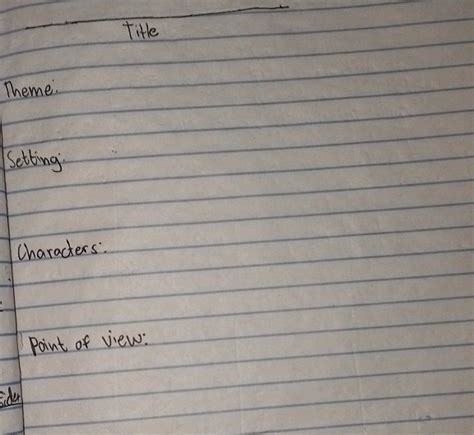 Title
Theme:
Setting:
Characters:
Point of view: